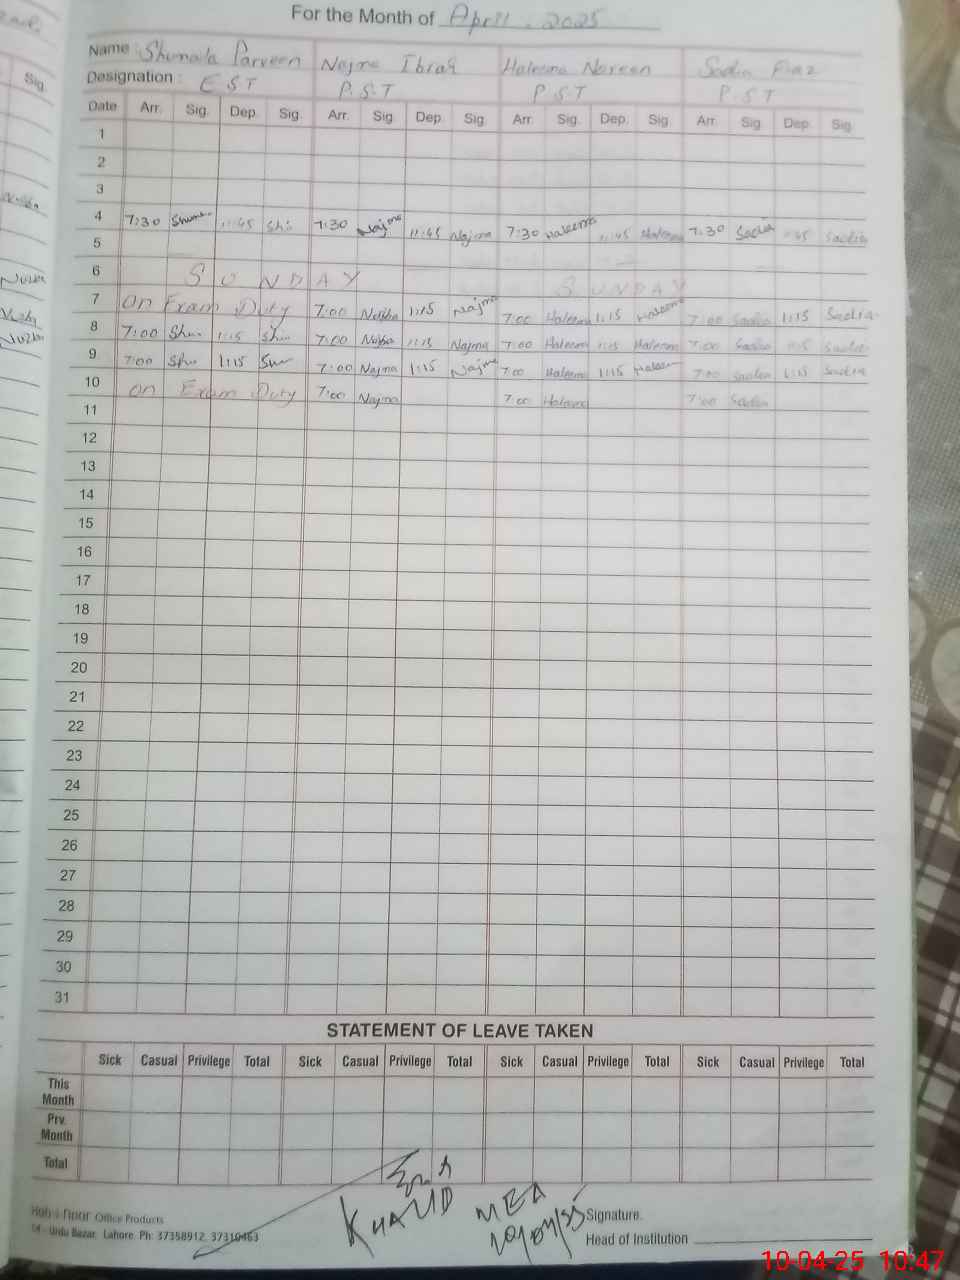 For the Month of April, 2025
Name : Shumaila Parveen Najma Ibrah Haleema Noreen Sadia
Designation : E.S.T P.S.T P.S.T P.S.T
Date Arr. Sig. Dep. Sig. Arr. Sig. Dep. Sig. Arr. Sig. Dep. Sig. Arr. Sig. Dep. Sig.
1
2
3
4 7:30 11:45 7:30 Najma 11:45 Najma 7:30 Haleema 11:45 Haleema 7:30 Sadia 11:45 Sadia
5
6 SUNDAY SUNDAY
7 On Exam Duty 7:00 1:15 Najma 7:00 Haleema 1:15 Haleema 7:00 Sadia 1:15 Sadia
8 7:00 1:15 7:00 1:15 Najma 7:00 Haleema 1:15 Haleema 7:00 Sadia 1:15 Sadia
9 7:00 1:15 7:00 Najma 1:15 Najma 7:00 Haleema 1:15 Haleem 7:00 Sadia 1:15 Sadia
10 On Exam Duty 7:00 Najma 7:00 Haleema 7:00 Sadia
11
12
13
14
15
16
17
18
19
20
21
22
23
24
25
26
27
28
29
30
31
STATEMENT OF LEAVE TAKEN
Sick Casual Privilege Total Sick Casual Privilege Total Sick Casual Privilege Total Sick Casual Privilege Total
This Month
Prv. Month
Total
KHALID MEA
Office Products
Urdu Bazar, Lahore. Ph: 37358912, 37310463
Signature.
Head of Institution
10-04-25 10:47